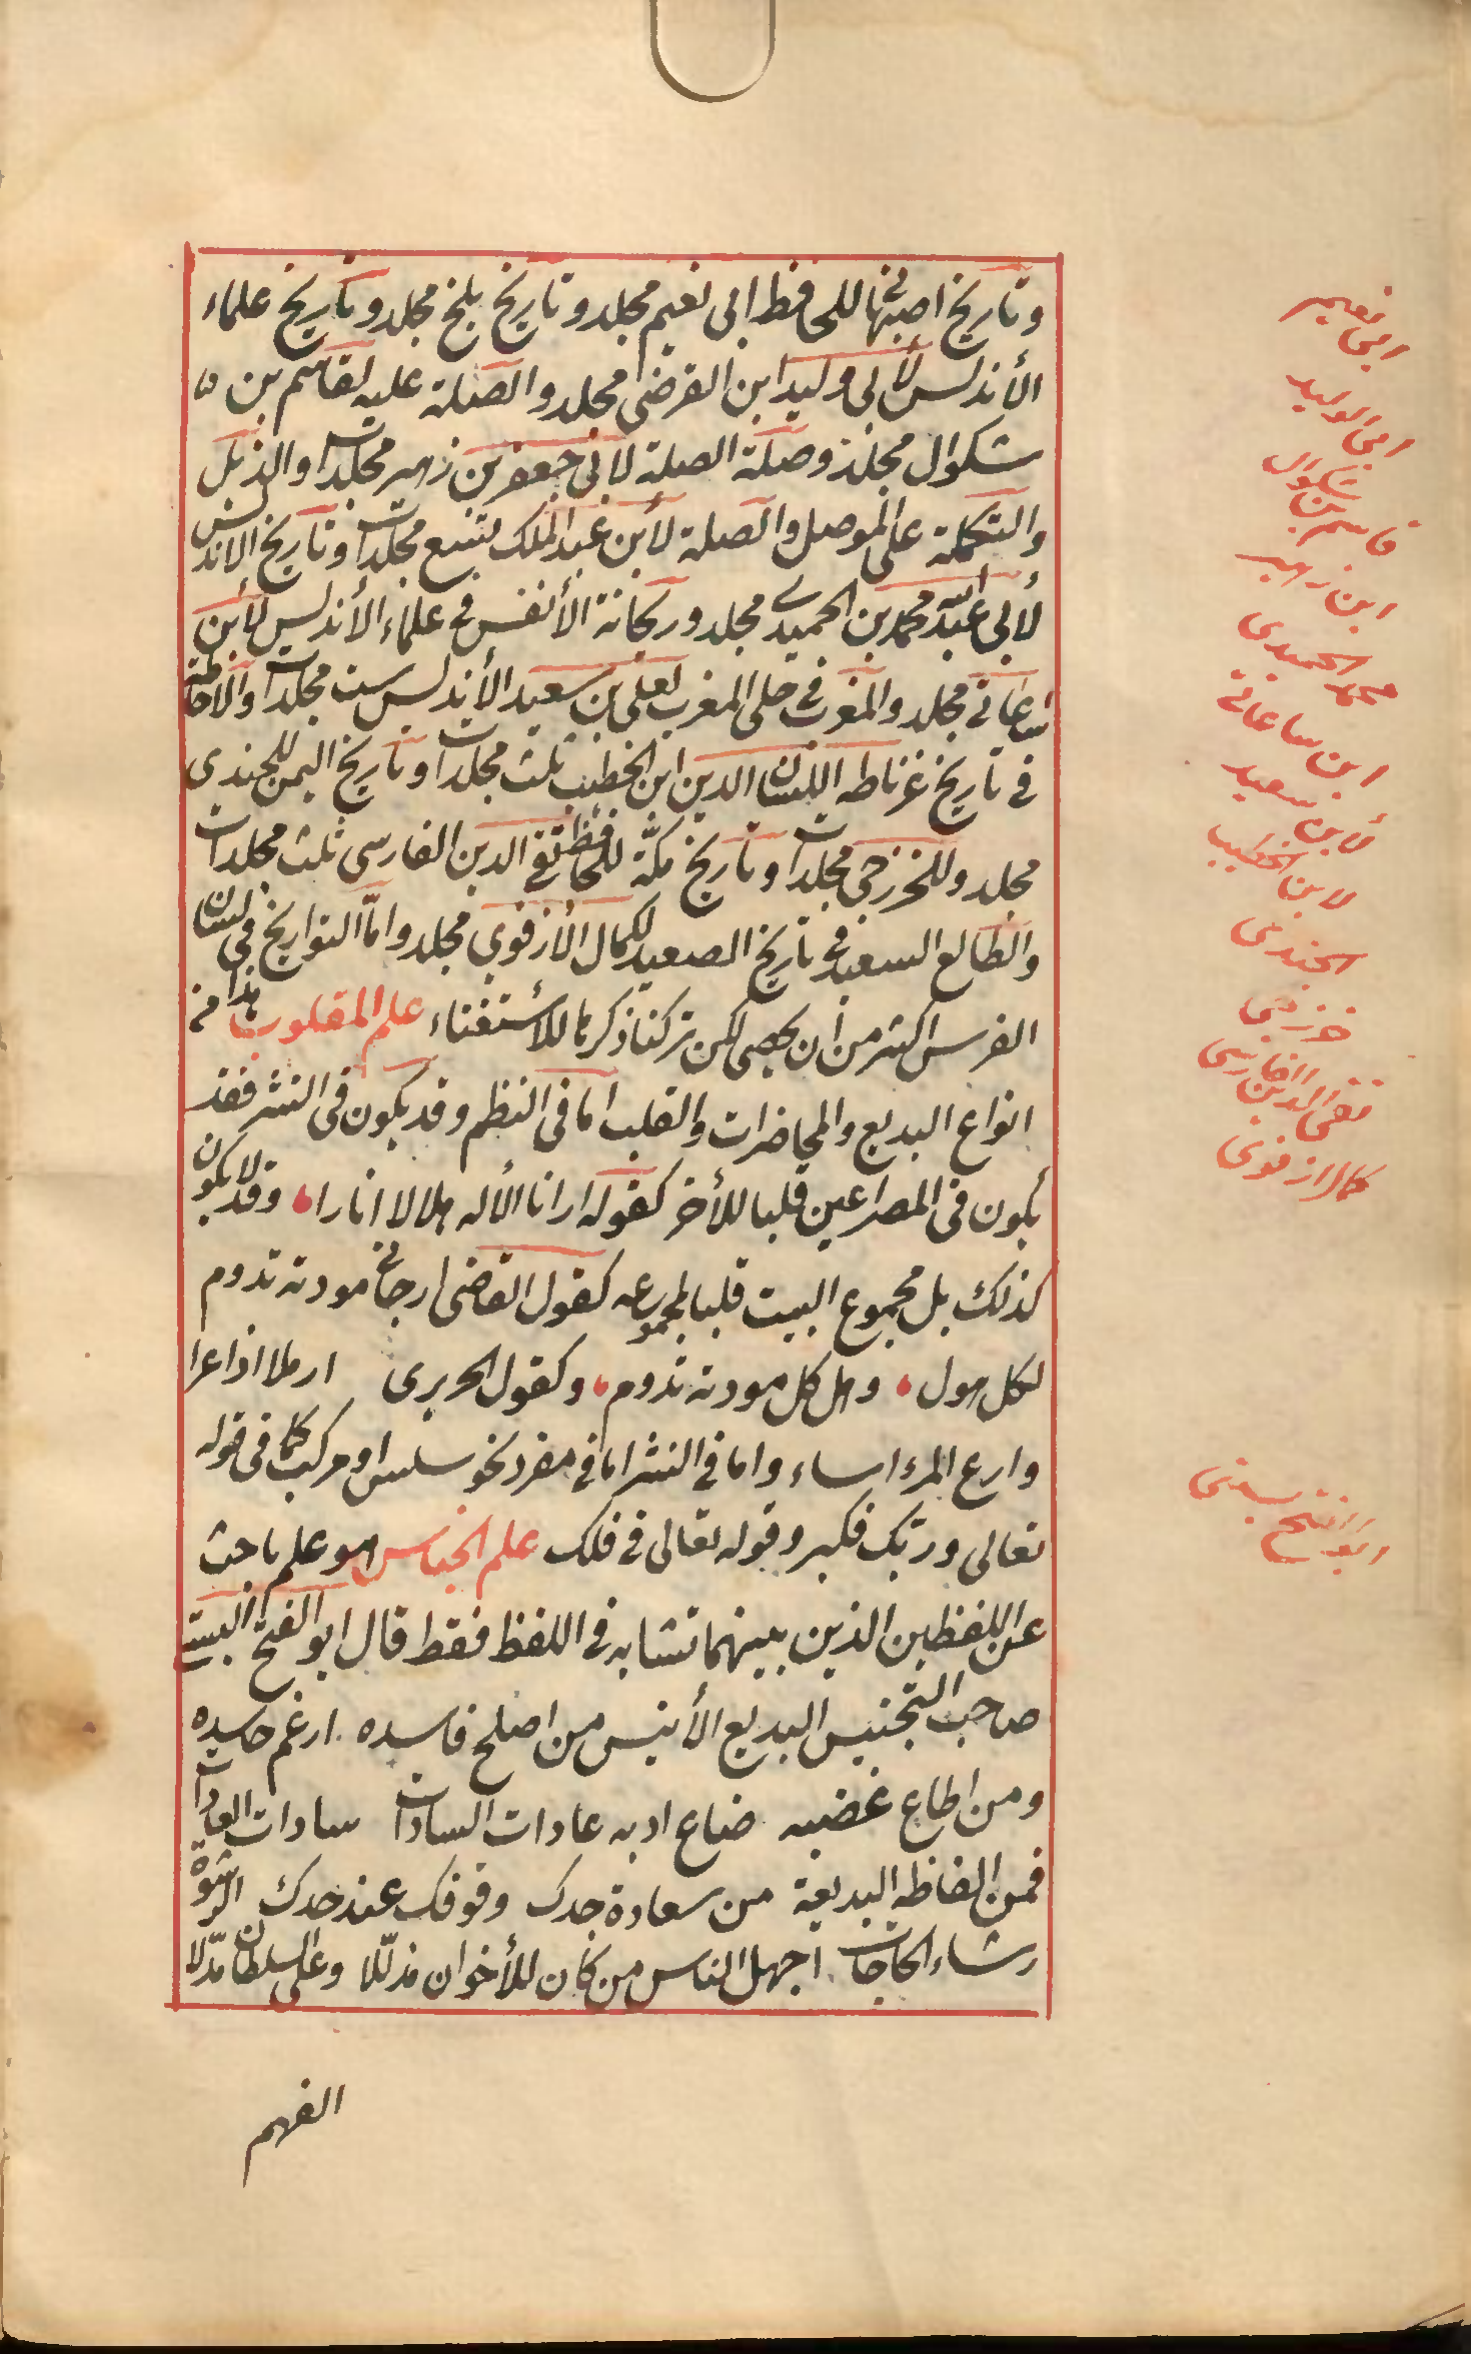 وتاريخ اصبهان للحافظ ابى نعيم مجلد وتاريخ بلخ مجلد وتاريخ علماء
الأندلس لأبى وليد ابن الفرضى مجلد والصلة عليه لقاسم بن
شكوال مجلد وصلة الصلة لابى جعفر بن زهير مجلدات والذيل
والتكملة على الموصل والصلة لأبن عبد الملك لتسع مجلدات وتاريخ الاندلس
لأبى عبد الله محمد بن الحميدى مجلد وريحانة الأنفس فى علماء الأندلس لأبن
ساعاتى مجلد والمغرب فى حلى المغرب لعلى بن سعيد الأندلس ست مجلدات والاحاطة
فى تاريخ غرناطه اللسان الدين ابن الخطيب ثلث مجلدات وتاريخ اليمن للجندى
مجلد وللخزرجى مجلدات وتاريخ مكّة للحافظ تقى الدين الفارسى ثلث مجلدات
والطالع السعيد فى تاريخ الصعيد لكمال الأزفوى مجلد وامّا التواريخ فى لسان
الفرس اكثر من أن يحصى لكن تركنا ذكرها للأستغناء علم المقلوب هذا من
انواع البديع والمحاضرات والقلب اما فى النظم وقد يكون فى النثر فقد
يكون فى المصراعين قلبا للأخر كقوله ارانا الأله هلالا انارا وقد لا يكون
كذلك بل مجموع البيت قلبا لمجموعه كقول القاضى ارجانى مودته تدوم
لكل هول وهل كل مودته تدوم وكقول الحريرى ارملا اذا عرا
وارع المرء اساء واما فى النثر اما فى مفرد نحو سلس او مركب كما فى قوله
تعالى وربّك فكبر وقوله تعالى فى فلك علم الجناس هو علم باحث
عن اللفظين الذين بينهما تشابه فى اللفظ فقط قال ابو الفتح البستى
صاحب التجنيس البديع الأنيس من اصلح فاسده ارغم حاسده
ومن اطاع غضبه ضاع ادبه عادات السادات سادات العادات
فمن الفاظه البديعة من سعادة جدك وقوفك عند حدك الرشوة
رشاء الحاجات اجهل الناس من كان للأخوان مذلّلا وعلى السلطان مدّلا
الفهم
ابى نعيم
ابى الوليد
قاسم بن شكوال
ابن زهير
محمد الحميدى
ابن ساعاتى
لأبن سعيد
لابن الخطيب
الجندى
خزرجى
تقى الدين الفارسى
كمال ازفوى
ابو الفتح بستى